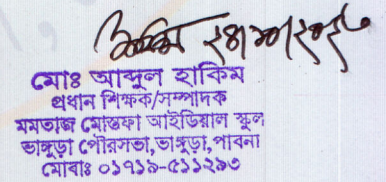 মোঃ আব্দুল হাকিম
প্রধান শিক্ষক/সম্পাদক
মমতাজ মোস্তফা আইডিয়াল স্কুল
ভাঙ্গুড়া পৌরসভা, ভাঙ্গুড়া, পাবনা
মোবাঃ ০১৭১৯-৫১১২৯৩